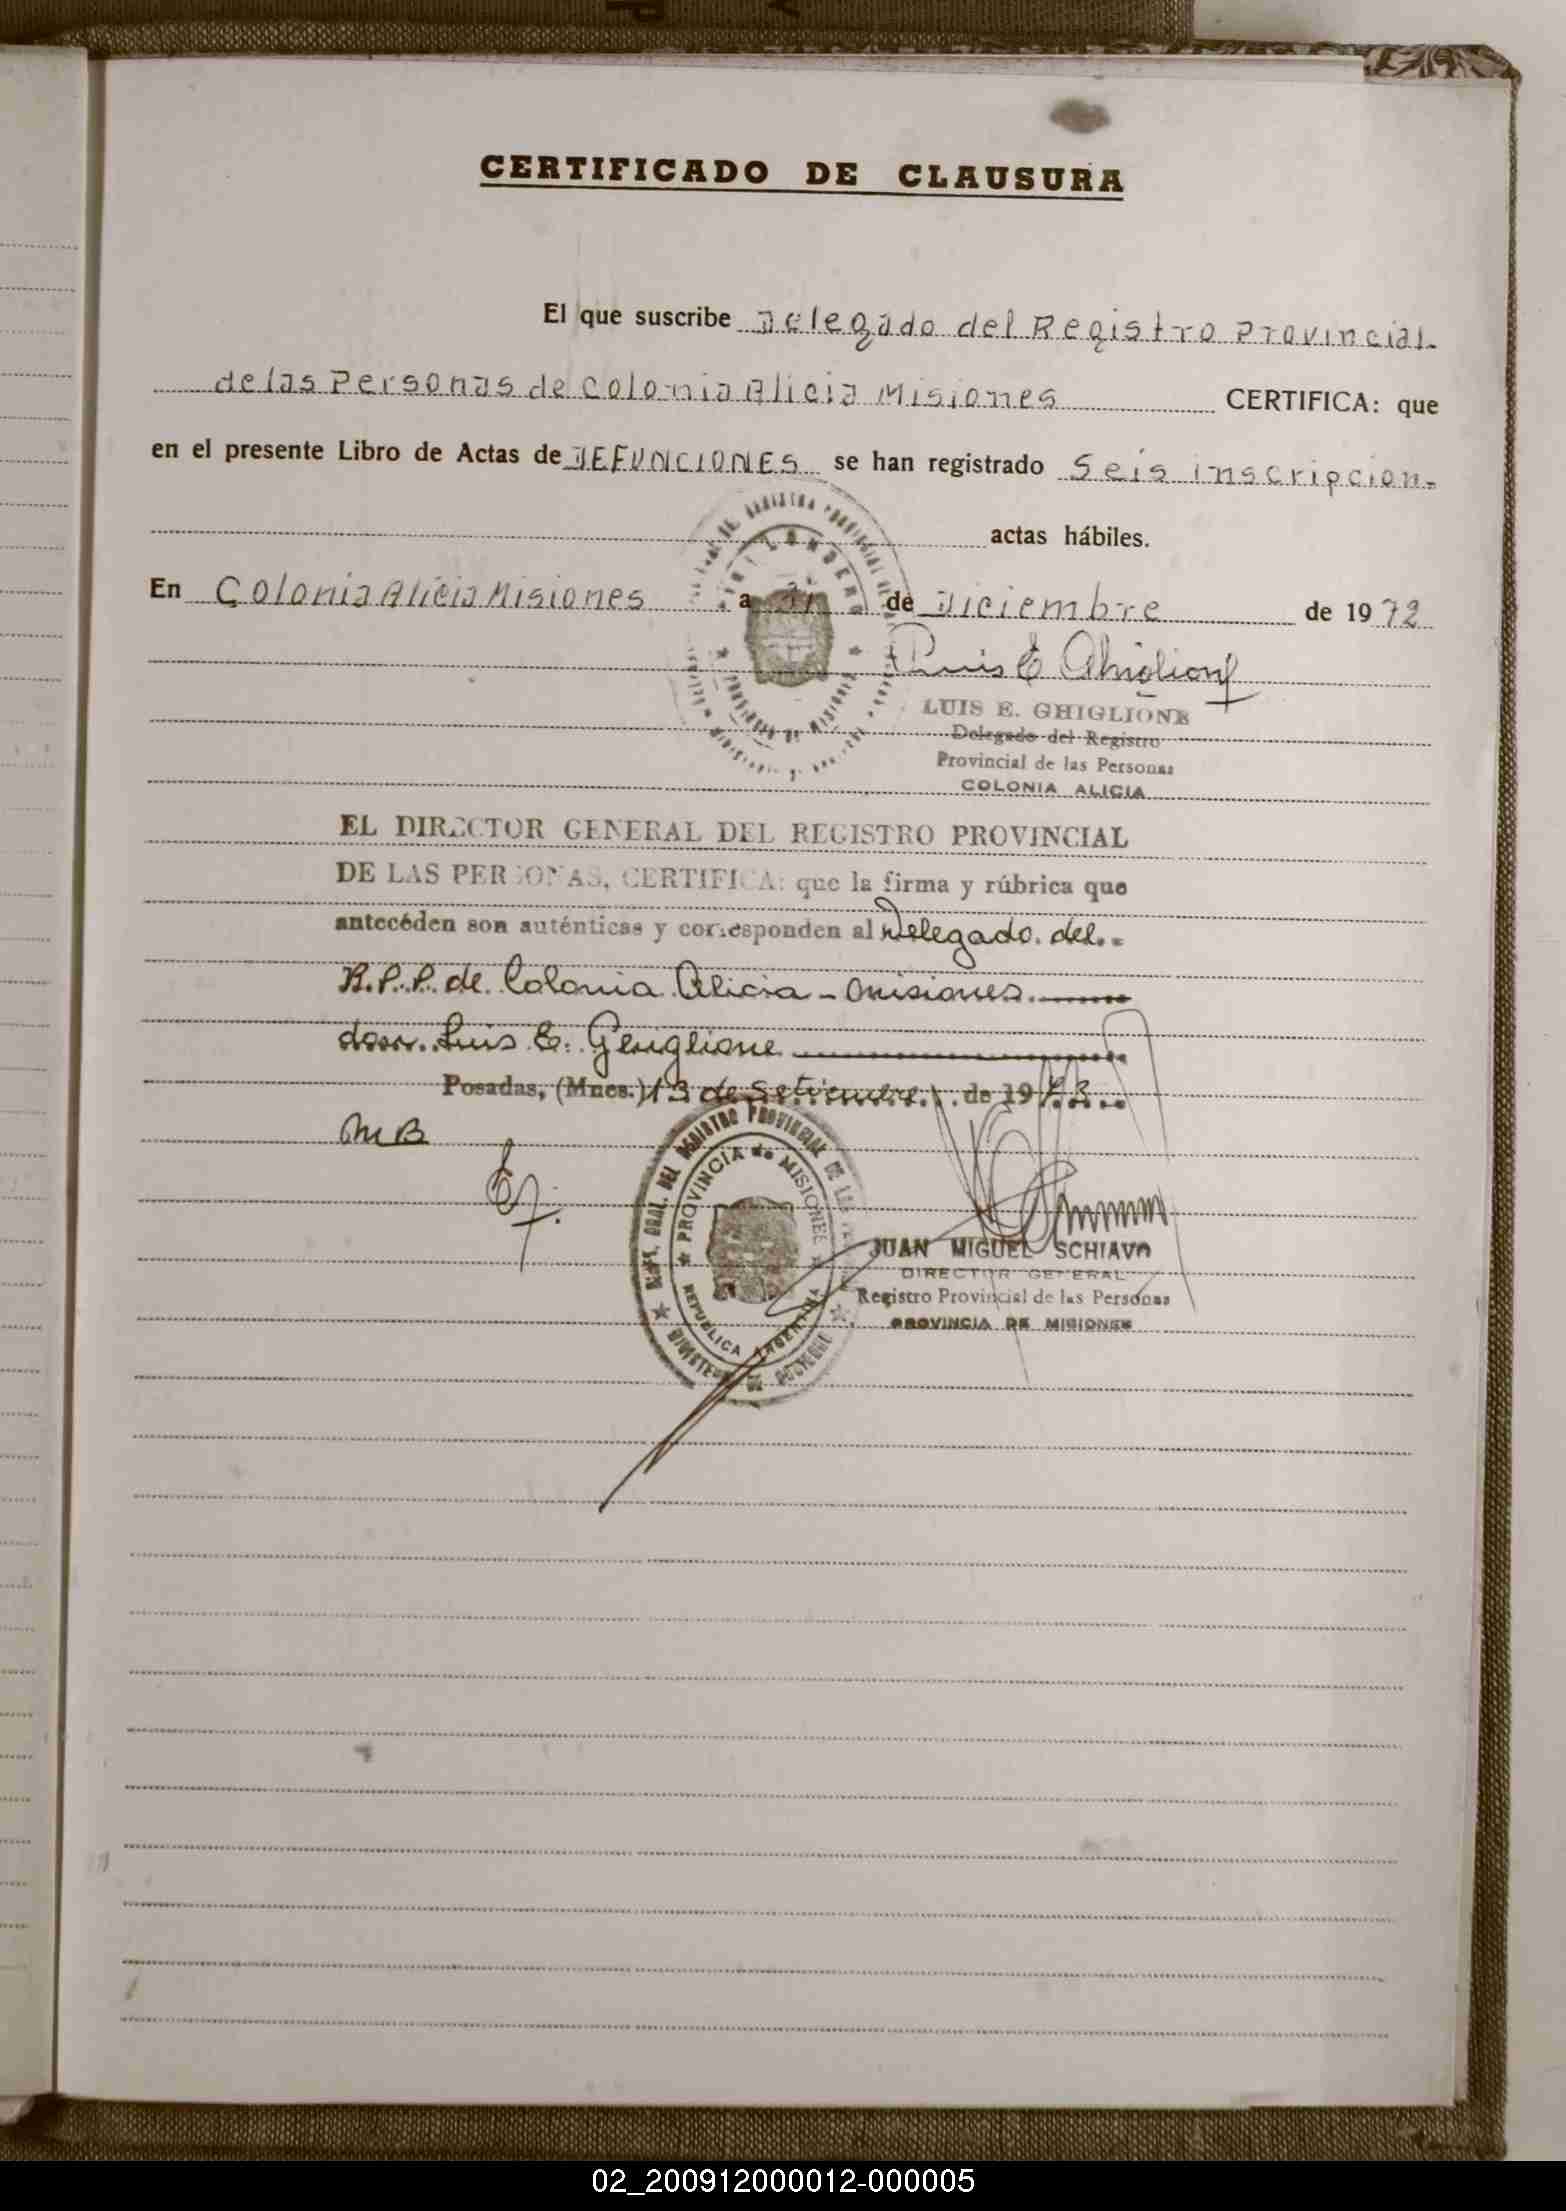 CERTIFICADO DE CLAUSURA
El que suscribe Delegado del Registro Provincial
de las Personas de Colonia Alicia Misiones CERTIFICA: que
en el presente Libro de Actas de DEFUNCIONES se han registrado Seis inscripcion-
actas hábiles.
En Colonia Alicia Misiones a 31 de Diciembre de 1972
Luis E Ghiglione
LUIS E. GHIGLIONE
Delegado del Registro
Provincial de las Personas
COLONIA ALICIA
EL DIRECTOR GENERAL DEL REGISTRO PROVINCIAL
DE LAS PERSONAS, CERTIFICA: que la firma y rúbrica que
antecéden son auténticas y corresponden al Delegado del
R.P.P. de Colonia Alicia - Misiones
don Luis E. Ghiglione
Posadas, (Mnes.) 13 de Setiembre de 1973
MB
DIR. GRAL. DEL REGISTRO PROVINCIAL DE LAS
PROVINCIA de MISIONES
REPUBLICA ARGENTINA
JUAN MIGUEL SCHIAVO
DIRECTOR GENERAL
Registro Provincial de las Personas
PROVINCIA DE MISIONES
02_200912000012-000005